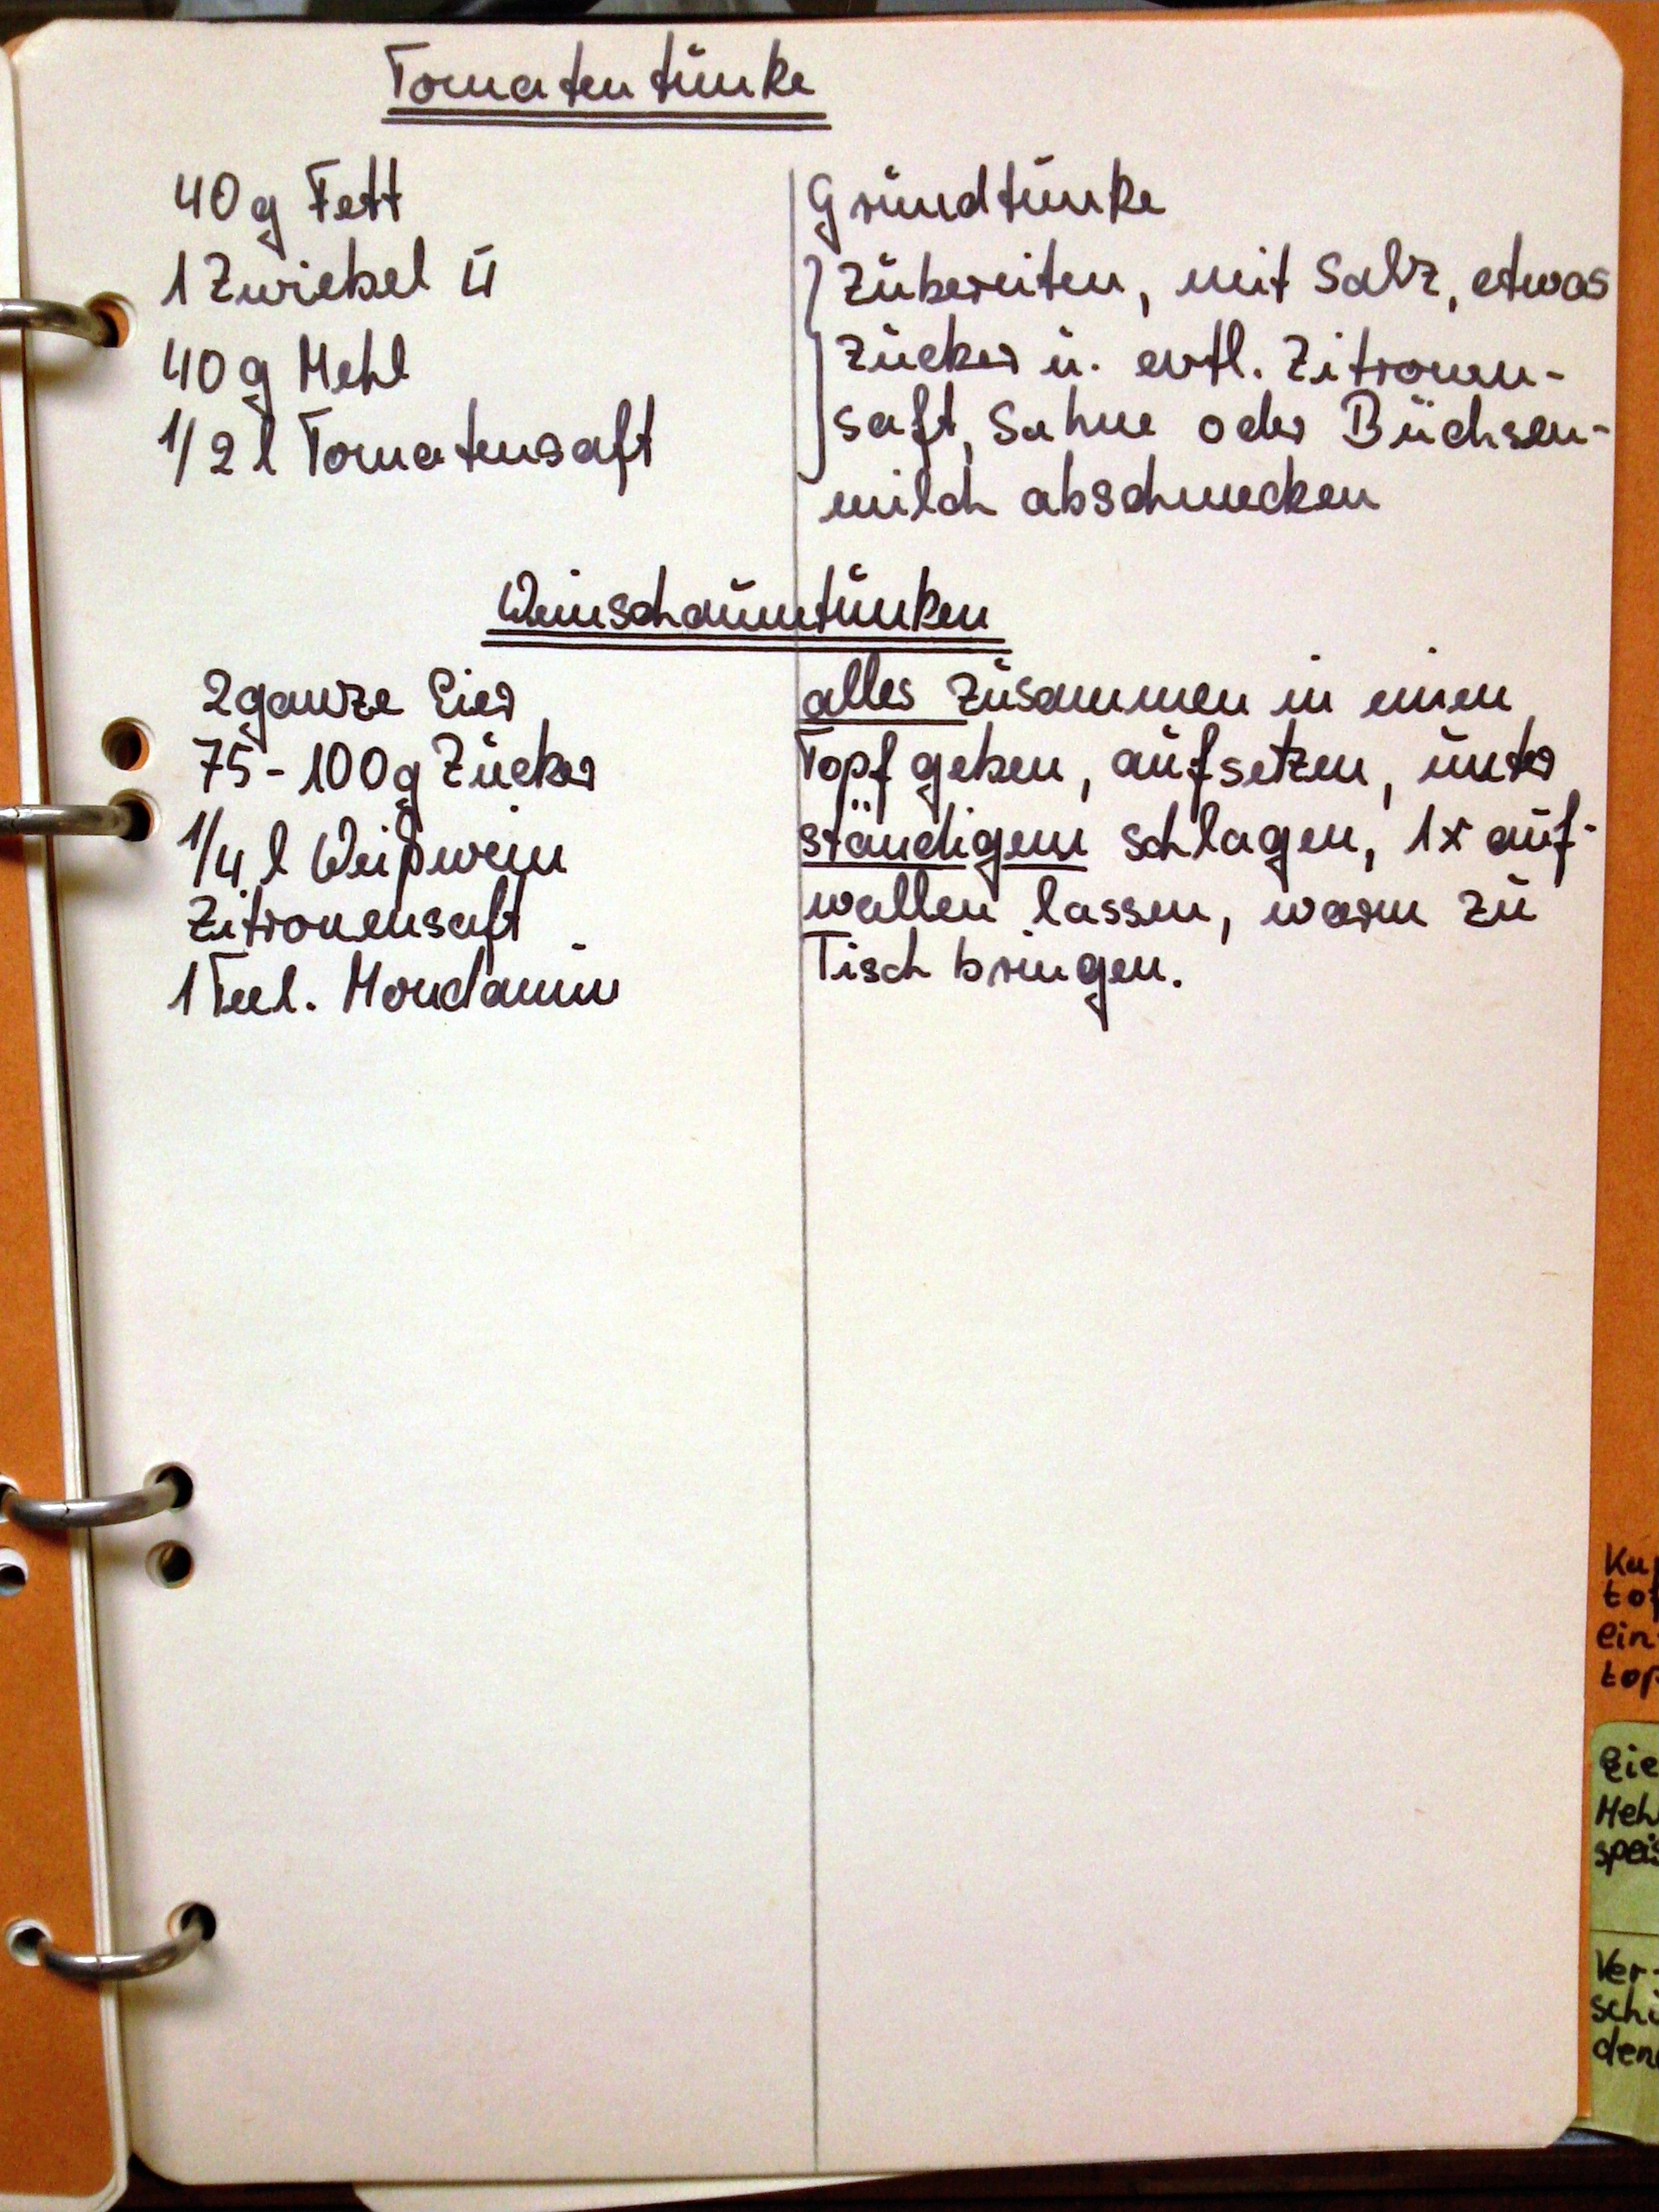 Tomatentunke
40g Fett
1 Zwiebel
40g Mehl
1/2 l Tomatensaft
Grundtunke
zubereiten, mit Salz, etwas
Zucker u. evtl. Zitronen-
saft, Sahne oder Büchsen-
milch abschmecken
Weinschaumtunken
2 ganze Eier
75-100g Zucker
1/4 l Weißwein
Zitronensaft
1 Teel. Mondamin
alles zusammen in einen
Topf geben, aufsetzen, unter
ständigem schlagen, 1x auf-
wallen lassen, warm zu
Tisch bringen.
ein-
top
Eie
Meh
speis
Ver-
schi
den